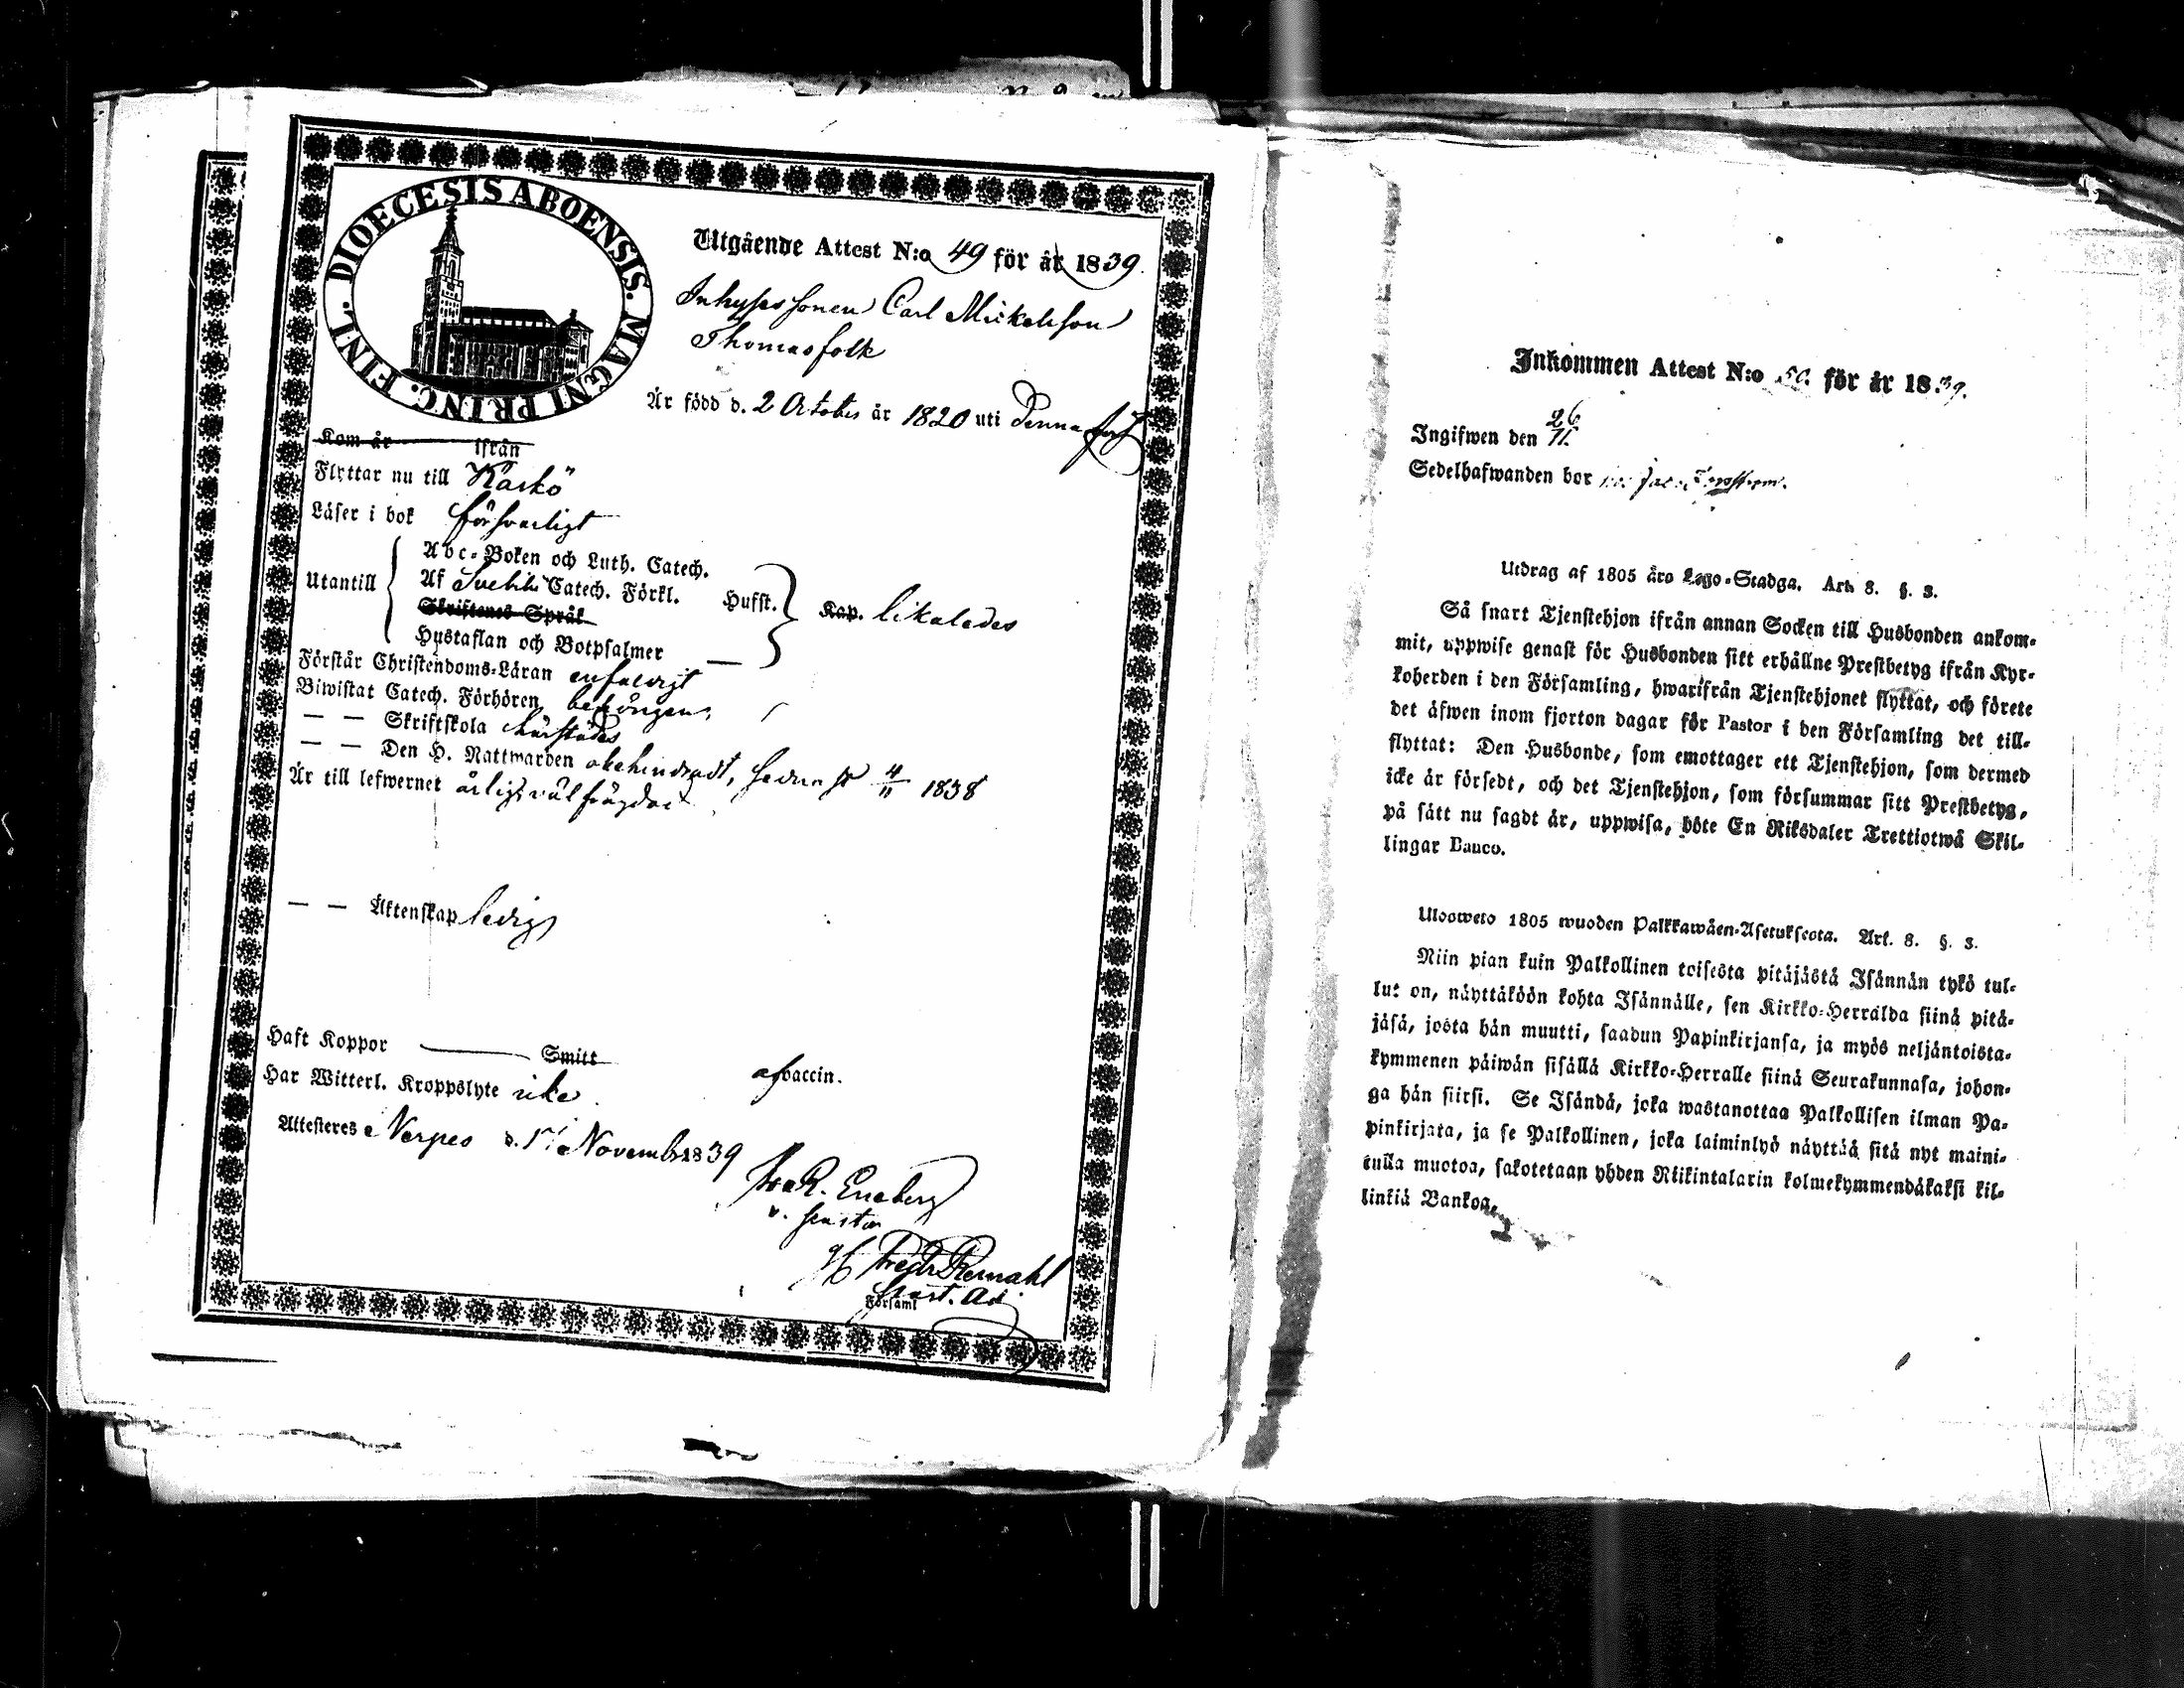 DIOECESIS ABOENSIS. MAGNI PRINC. FINL.
Utgående Attest N:o 49 för år 1839.
Inhyses sonen Carl Mickelsson
Thomasfolk
Är född d. 2 October år 1820 uti Denna förs
Kom år ifrån
Flyttar nu till Kaskö
Läser i bok försvarligt
Utantill
Abc-Boken och Luth. Catech.
Af Svebilii Catech. Förkl. Hufst.
Skriftenes Språk
Hustaflan och Botpsalmer —
Kap. likaledes
Förstår Christendoms-Läran enfaldigt
Biwistat Catech. Förhören behörigen
— — Skriftskola härstädes
— — Den H. Nattwarden obehindradt, sedna st 4/11 1838
Är till lefwernet ärlig, väl frägdad
— — Äktenskap ledig
Haft Koppor — Smitt vaccin.
Har Witterl. Kroppslyte icke
Attesteres Nerpes d. November 1839
Eneberg
v. Pastor
Past. Adj.
Församl
Inkommen Attest N:o 50. för år 1839.
Ingifwen den 26/11.
Sedelhafwanden bor
Utdrag af 1805 års Lego-Stadga. Art. 8. §. 3.
Så snart Tjenstehjon ifrån annan Socken till Husbonden ankom-
mit, uppwise genast för Husbonden sitt erhållne Prestbetyg ifrån Kyr-
koherden i den Församling, hwarifrån Tjenstehjonet flyttat, och förete
det äfwen inom fjorton dagar för Pastor i den Församling det till-
flyttat: Den Husbonde, som emottager ett Tjenstehjon, som dermed
icke är försedt, och det Tjenstehjon, som försummar sitt Prestbetyg,
på sätt nu sagdt är, uppwisa, böte En Riksdaler Trettiotwå Skil-
lingar Banco.
Ulosweto 1805 wuoden Palkkawäen-Asetuksesta. Art. 8. §. 3.
Niin pian kuin Palkollinen toisesta pitäjästä Isännän tykö tul-
lut on, näyttäköön kohta Isännälle, sen Kirkko-Herralda siinä pitä-
jäsä, josta hän muutti, saadun Papinkirjansa, ja myös neljäntoista-
kymmenen päiwän sisällä Kirkko-Herralle siinä Seurakunnasa, johon-
ga hän siirsi. Se Isändä, joka wastanottaa Palkollisen ilman Pa-
pinkirjata, ja se Palkollinen, joka laiminlyö näyttää sitä nyt maini-
tulla muotoa, sakotetaan yhden Riikintalarin kolmekymmendäkaksi kil-
linkiä Bankoa.